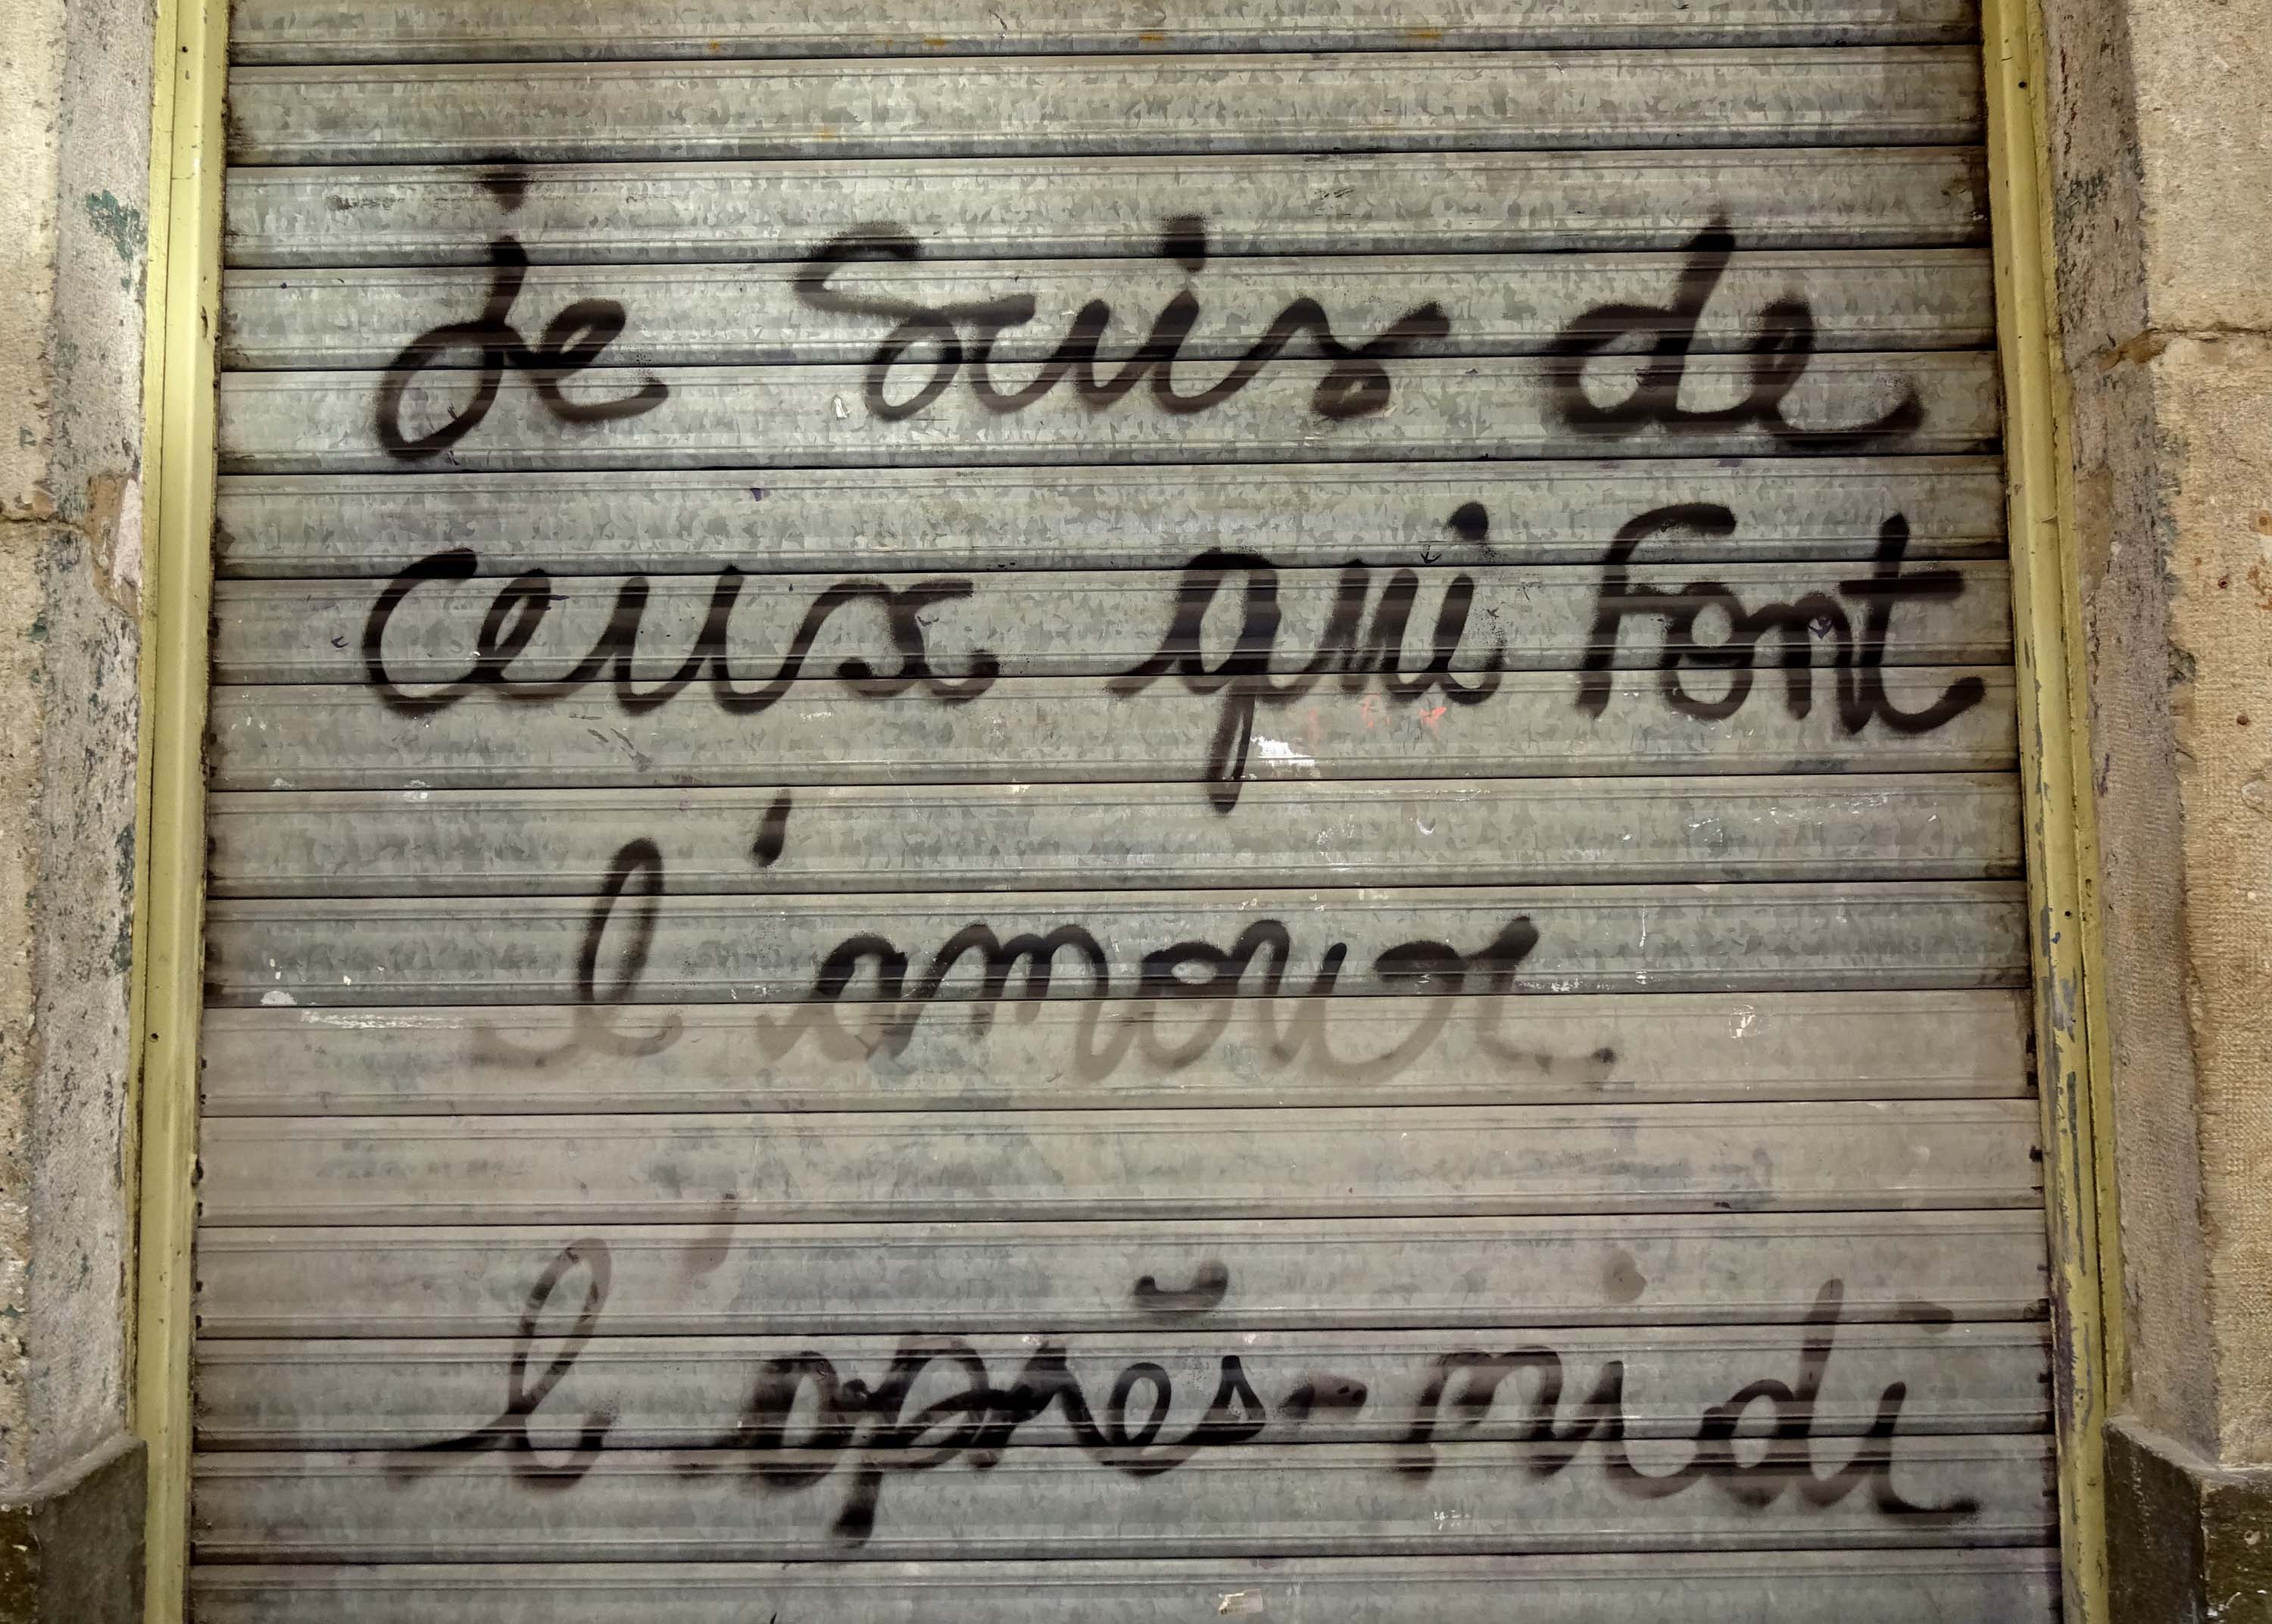 je suis de
ceux qui font
l'amour
l'après-midi